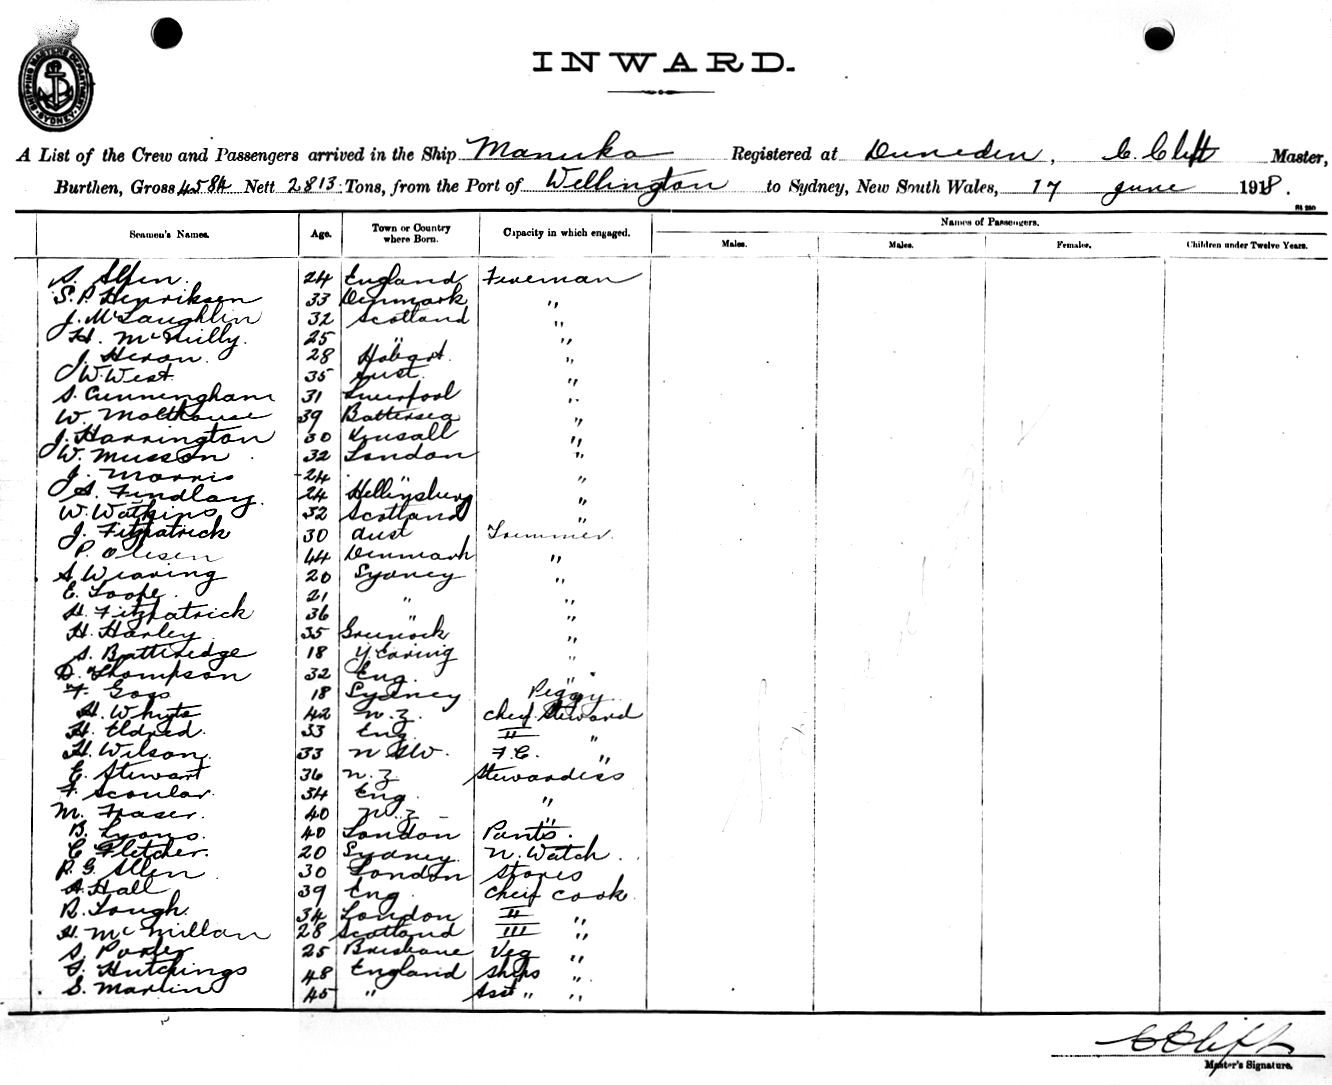 SHIPPING MASTERS DEPARTMENT SYDNEY
INWARD.
A List of the Crew and Passengers arrived in the Ship Manuka Registered at Duneden, C. Clift Master,
Burthen, Gross 4584 Nett 2813 Tons, from the Port of Wellington to Sydney, New South Wales, 17 June 1918.
Names of Passengers.
Seamen's Names. Age. Town or Country where Born. Capacity in which engaged. Males. Males. Females. Children under Twelve Years.
24 England Fireman
S. P. Henriksen 33 Denmark "
J. McLaughlin 32 Scotland "
H. McNilly. 25 " "
J. Heron. 28 Hobart. "
W. West 35 Aust. "
S. Cunningham 31 Liverpool "
W. Molthouse 39 Battersea "
J. Harrington 30 "
W. Musson 32 London "
J. Morris 24 " "
A. Findlay. 24 "
W. Watkins 32 Scotland "
J. Fitzpatrick 30 Aust Trimmer.
P. Olesen 44 Denmark "
A. Wearing 20 Sydney "
E. Toope. 21 " "
H. Fitzpatrick 36 " "
H. Harley 35 Greenock "
S. Batteridge 18 "
D. Thompson 32 Eng. "
F. Gogo 18 Sydney Peggy
H. Whyte 42 N.Z. Cheif Steward
H. Eldred. 33 Eng. II "
H. Wilson. 33 NSW. F.C. "
E. Stewart 36 N.Z. Stewardess
F. Scoular. 34 Eng. "
M. Fraser. 40 N.Z. "
B. Lyons. 40 London Pants.
C. Fletcher. 20 Sydney N. Watch.
P. G. Allen 30 London Stores
A. Hall 39 Eng. Cheif Cook
R. Tough. 34 London II "
H. McMillan 28 Scotland III "
S. Porter 25 Brisbane Veg "
Hutchings 48 England Ships "
S. Martin 45 " Asst " "
C Clift
Master's Signature.